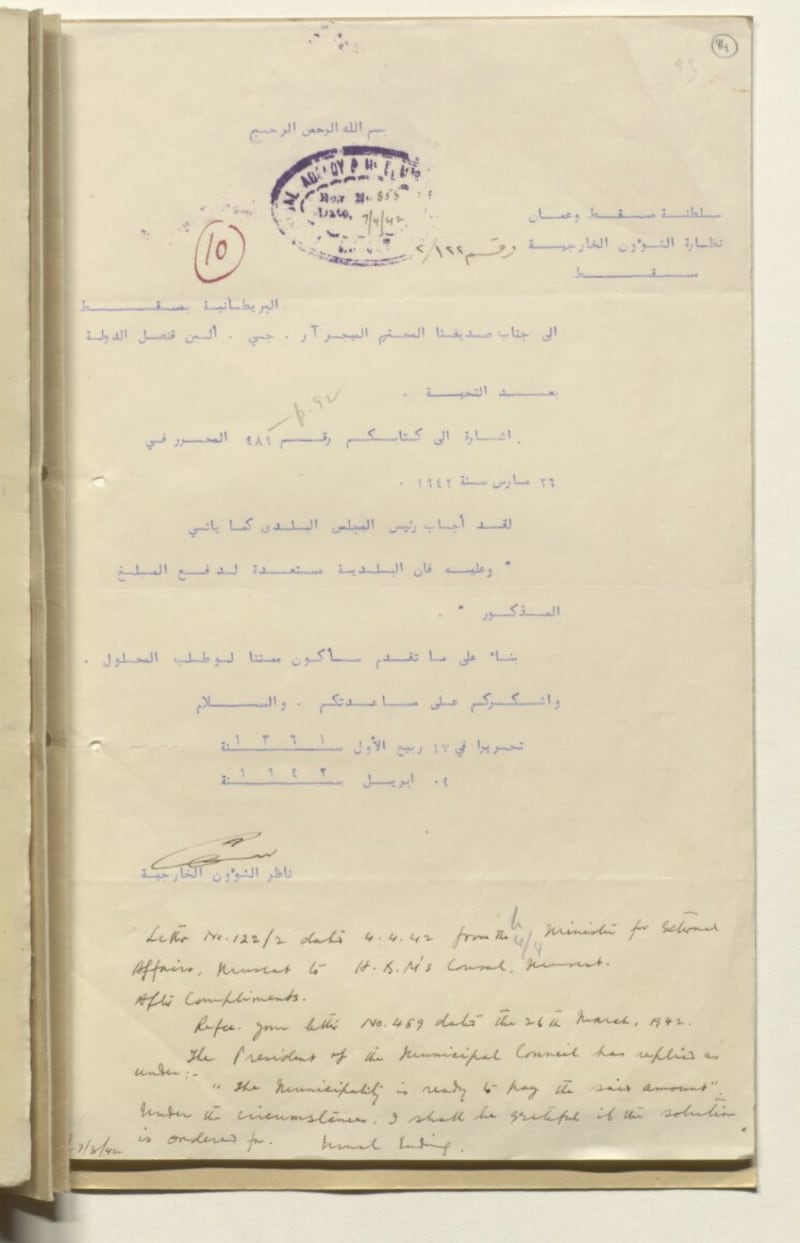 93
بسم الله الرحمن الرحيم
Rex No. 855
Date. 7/4/42
10
سلطنة مسقط وعمان
نظارة الشؤون الخارجية
رقم ٢/١٢٢
مسقط
البريطانية بمسقط
الى جناب صديقنا المحترم الميجر آر . جي . ألين قنصل الدولة
بعد التحية .
p. 92
اشارة الى كتابكم رقم ٤٨٩ المحرر في
٢٦ مارس سنة ١٩٤٢ .
لقد أجاب رئيس المجلس البلدى كما ياتي
" وعليه فان البلدية مستعدة لدفع المبلغ
المذكور " .
بناء على ما تقدم سأكون ممتنا لو طلب المحلول .
واشكركم على مساعدتكم . والسلام
تحريرا في ١٧ ربيع الأول سنة ١٣٦١
٠٤ ابريل سنة ١٩٤٢
ناظر الشوؤن الخارجية
Letter No. 122/2 dated 4.4.42 from the Minister for External
Affairs, Muscat to H.B.M's Consul, Muscat.
After Compliments.
Refce. your letter No. 489 dated the 26th March, 1942.
The President of the Municipal Council has replied as
under:-
" The Municipality is ready to pay the said amount".
Under the circumstances, I shall be grateful if the solution
is ordered for. Usual Ending.